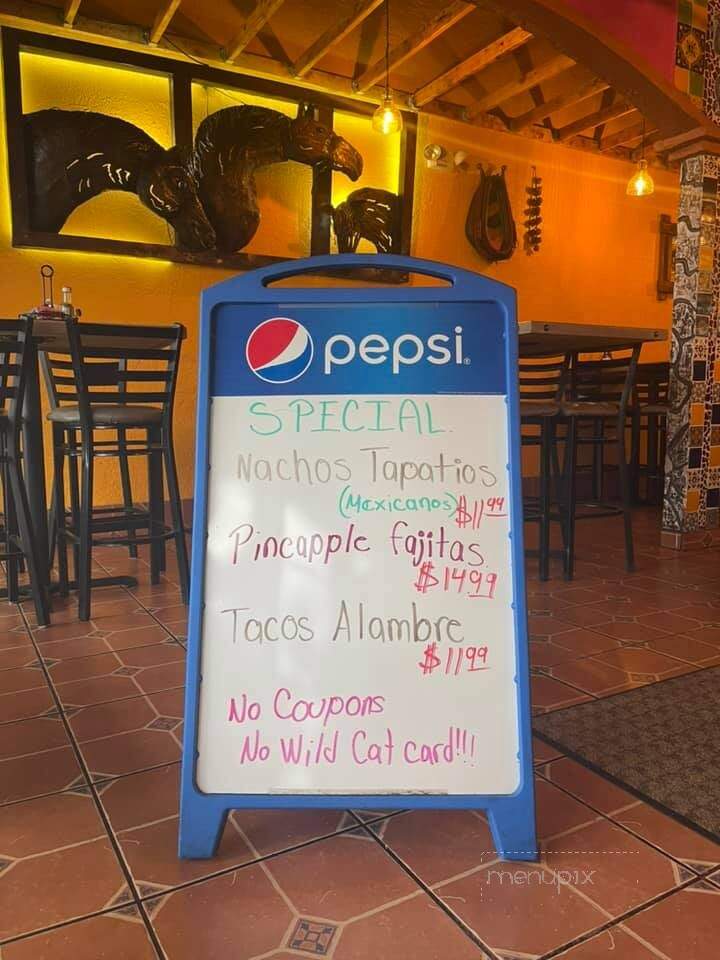 pepsi
SPECIAL.
Nachos Tapatios
(Mexicanos) $11.99
Pineapple fajitas
$14.99
Tacos Alambre
$11.99
No Coupons
No Wild Cat card!!!
menupix